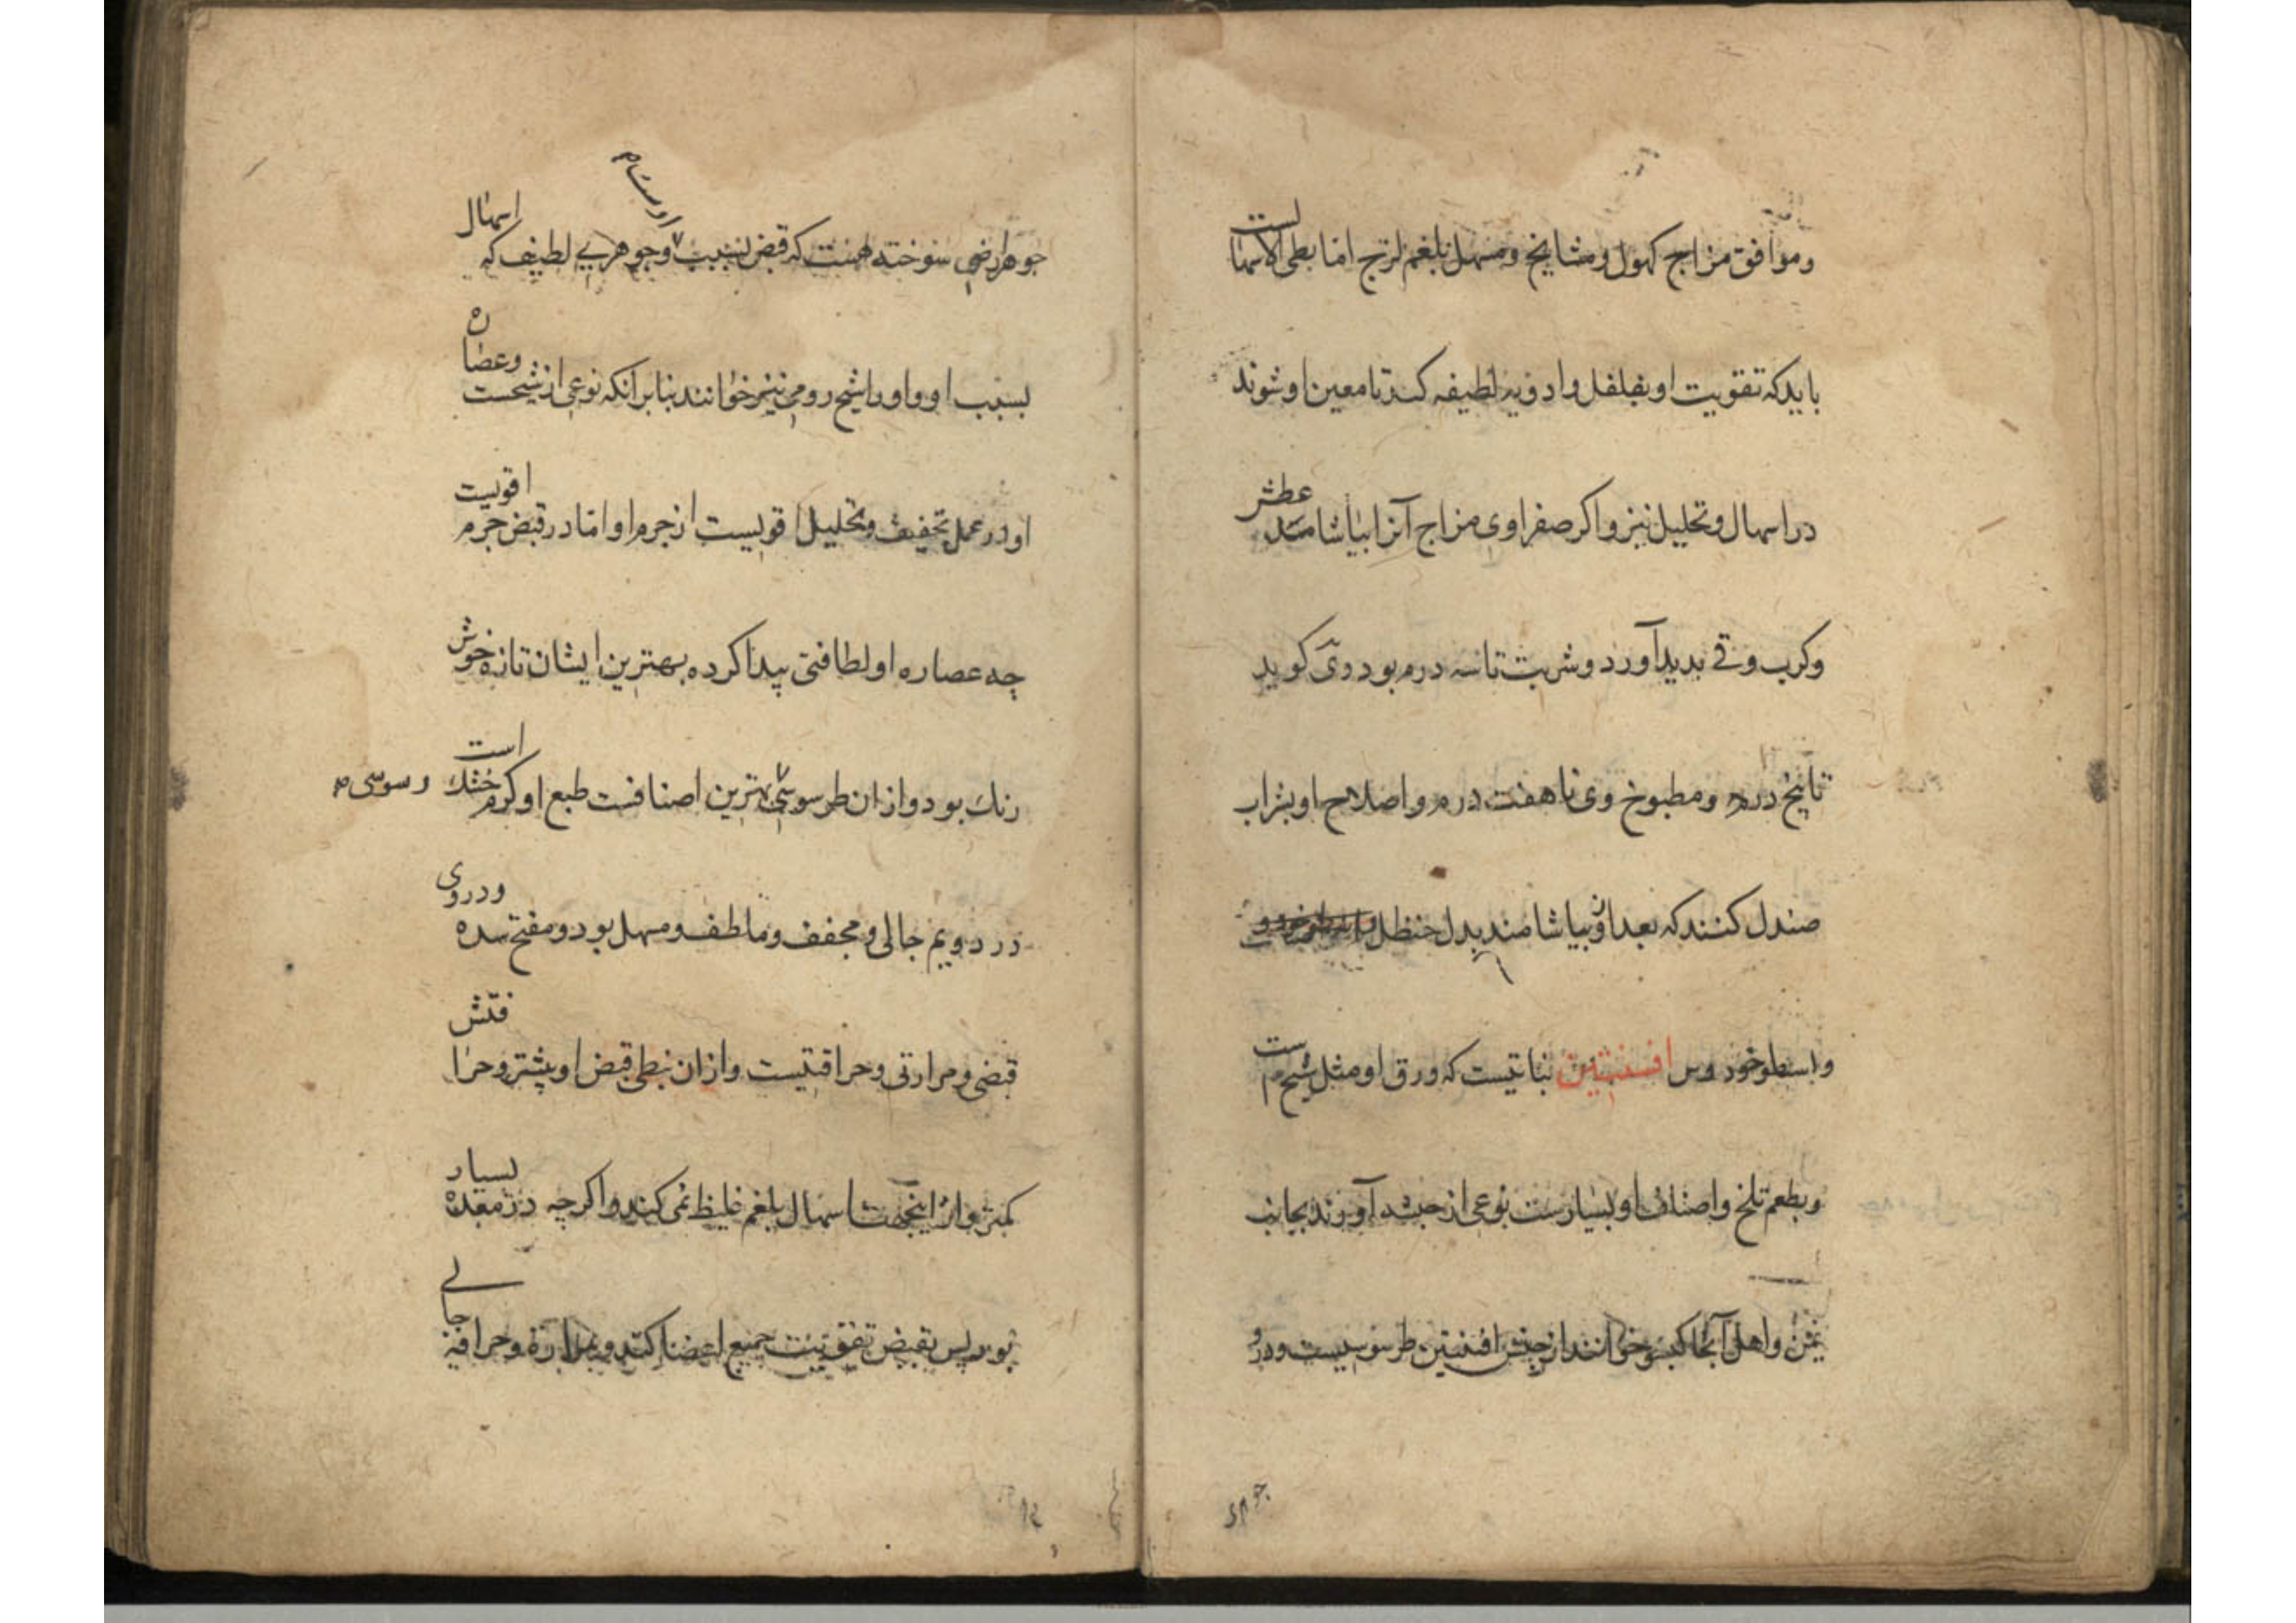 وموافق مزاج کهول ومشایخ ومسهل بلغم لزج اما بطی الاسها لست
باید که تقویت او بفلفل وادویه لطیفه کند تا معین او شوند
در اسهال وتحلیل نیز واکر صفراوی مزاج آنرا بیاشامد عطش
وکرب وقی بدید آورد وشربت تا سه درم بود وی کوید
تا پنج درم ومطبوخ وی تا هفت درم واصلاح او بشراب
صندل کنند که بعد ازو بیاشامند بدل حنظل
واسطوخودوس افسنتین نباتیست که ورق او مثل شیح است
وبطعم تلخ واصناف او بسیارست نوعی از حبشه آورند بجانب
یمن واهل آنجا خوانند از جنس افسنتین طرسوسیست ودرو
جوهر ارضی سوخته هست که قبض بسبب اوست وجوهری لطیف که اسهال
بسبب او واورا شیح رومی نیز خوانند بنابر آنکه نوعی از شیحست وعصاره
او در عمل تجفیف وتحلیل اقویست از جرم او اما در قبض جرم اقویست
چه عصاره او لطافتی پیدا کرده بهترین ایشان تازه خوش
رنك بود واز ان طرسوسی وسوسی بهترین اصنافست طبع او کرم خشك است
در دویم جالی ومجفف وملطف ومسهل بود ومفتح سده ودروی
قبضی ومرارتی وحرافتیست واز ان نبطی قبض او بیشتر وحرا فتش
کمتر واز اینجهت اسهال بلغم غلیظ نمی کند واکرچه در معده بسیار
بود پس بقبض تقویت جمیع اعضا کند وبمرارة وحرافة جالی